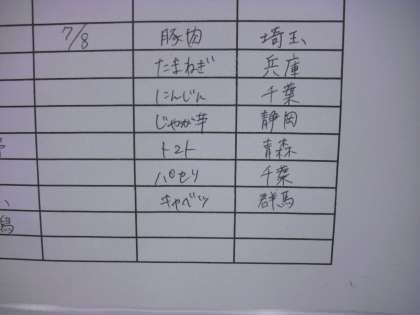 7/8 豚肉 埼玉
たまねぎ 兵庫
にんじん 千葉
じゃが芋 静岡
トマト 青森
パセリ 千葉
キャベツ 群馬
潟